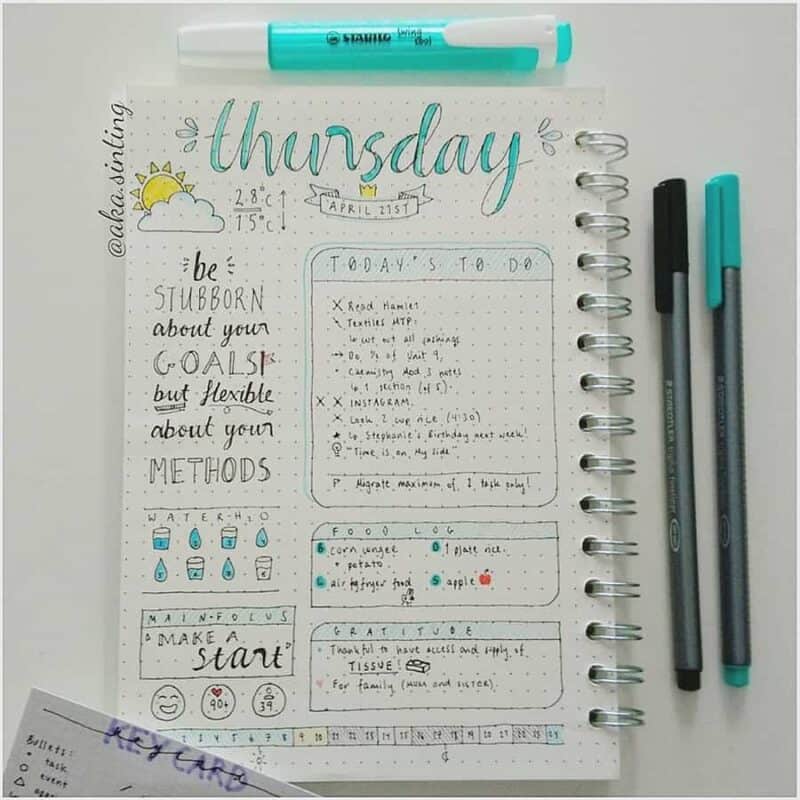 STABILO swing cool
@aka.sinting
thursday
28°C ↑
15°C ↓
APRIL 21ST
be
STUBBORN
about your
GOALS
but flexible
about your
METHODS
WATER-H2O
MAIN-FOCUS
MAKE A
start
90+
39
TODAY'S TO DO
Read Hamlet
Textiles MTP:
cut out all fashings
→ Do 1/2 of Unit 9.
Chemistry Mod 3 notes
↳ 1 section (of 5).
X X INSTAGRAM.
2 cup rice (4:30)
Stephanie's Birthday next week!
"Time is on My side"
Migrate maximum of 2 task only!
FOOD LOG
B corn congee
+ potato
D 1 plate rice.
L airfryer food
S apple
GRATITUDE
Thankful to have access and supply of
TISSUE!
For family (MUM and SISTER).
2 3 4 5 6 7 8 9 10 11 12 13 14 15 16 17 18 19 20 21 22 23 24
KEY CARD
key card
Bullets:
task
event
STAEDTLER triplus fineliner
STAEDTLER